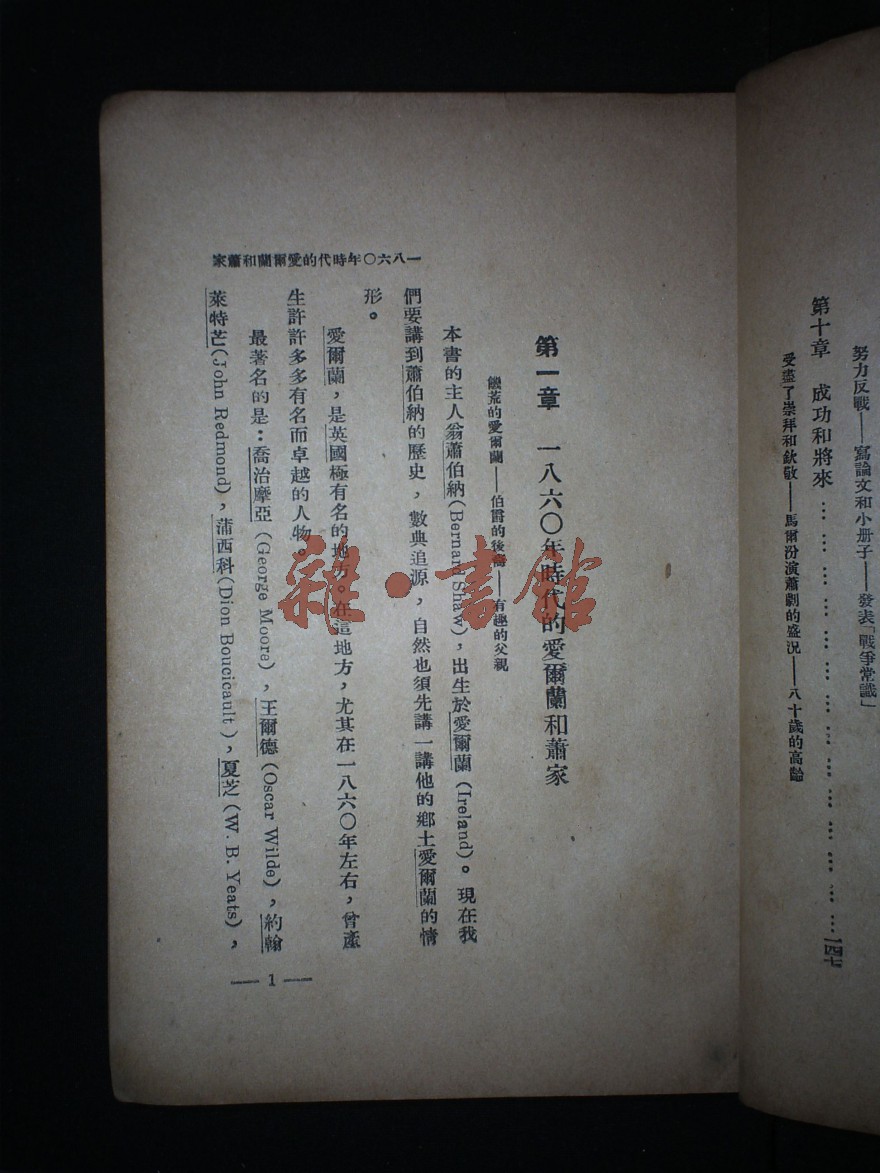 努力反戰——寫論文和小册子——發表「戰爭常識」
第十章　成功和將來…………………………………一四七
受盡了崇拜和欽敬——馬爾汾演蕭劇的盛況——八十歲的高齡
一八六〇年時代的愛爾蘭和蕭家
第一章　一八六〇年時代的愛爾蘭和蕭家
饑荒的愛爾蘭——伯爵的後裔——有趣的父親
本書的主人翁蕭伯納(Bernard Shaw)，出生於愛爾蘭(Ireland)。現在我
們要講到蕭伯納的歷史，數典追源，自然也須先講一講他的鄉土愛爾蘭的情
形。
愛爾蘭，是英國極有名的地方。在這地方，尤其在一八六〇年左右，曾產
生許許多多有名而卓越的人物。
最著名的是：喬治摩亞(George Moore)，王爾德(Oscar Wilde)，約翰
萊特芒(John Redmond)，蒲西科(Dion Boucicault)，夏芝(W. B. Yeats)，
— 1 —
雜·書館